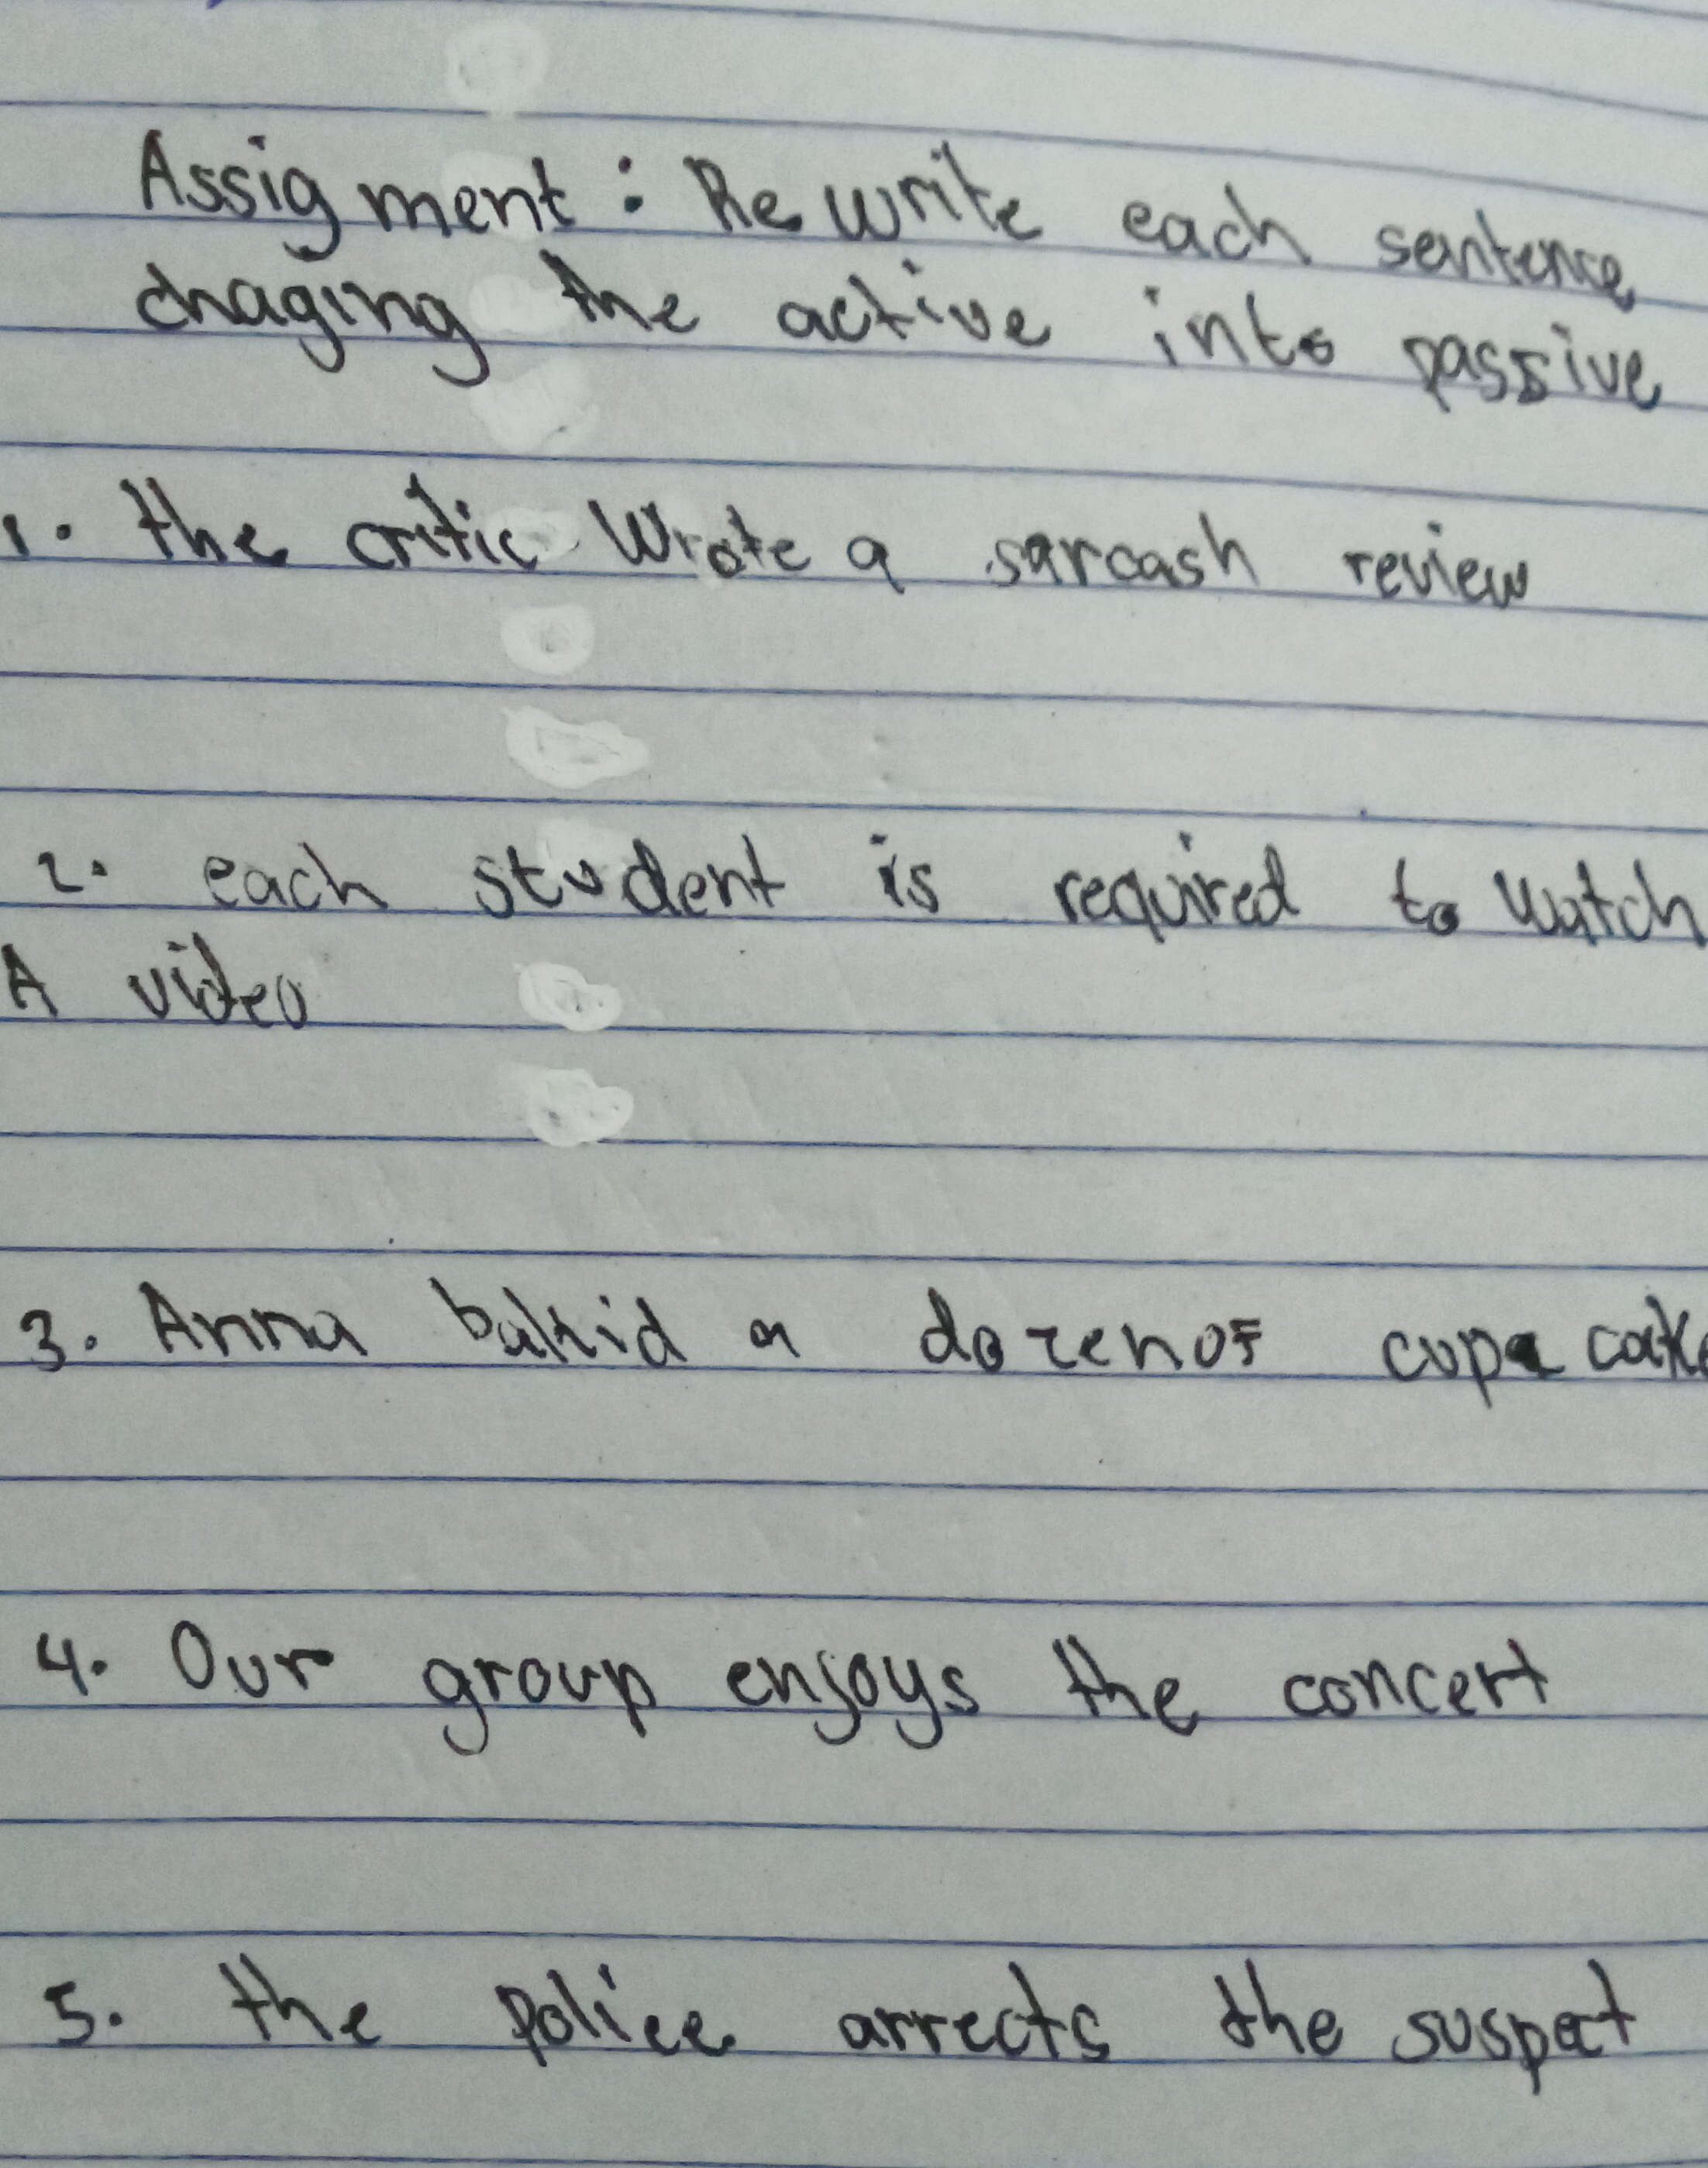 Assigment: Rewrite each sentence
chaging the active into passive
1. the critic Wrote a sarcash review
2. each student is required to watch
A video
3. Anna bakid a dozenof cupa cake
4. Our group enjoys the concert
5. the police arrects the suspect